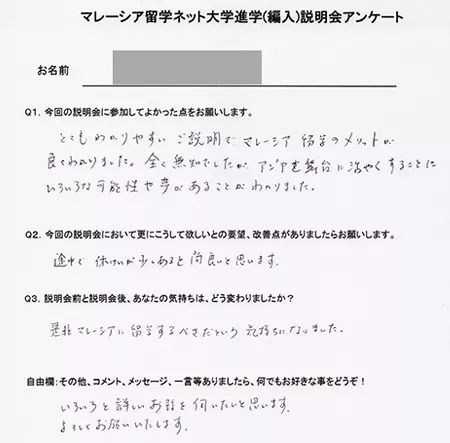 マレーシア留学ネット大学進学(編入)説明会アンケート
お名前
Q1. 今回の説明会に参加してよかった点をお願いします。
とてもわかりやすいご説明で、マレーシア留学のメリットが
良くわかりました。全く無知でしたが、アジアを舞台に活やくすることに
いろいろな可能性や夢があることがわかりました。
Q2. 今回の説明会において更にこうして欲しいとの要望、改善点がありましたらお願いします。
途中で休けいが少しあると尚良いと思います。
Q3. 説明会前と説明会後、あなたの気持ちは、どう変わりましたか?
是非マレーシアに留学するべきだという気持ちになりました。
自由欄:その他、コメント、メッセージ、一言等ありましたら、何でもお好きな事をどうぞ!
いろいろと詳しいお話を伺いたいと思います。
よろしくお願いいたします。